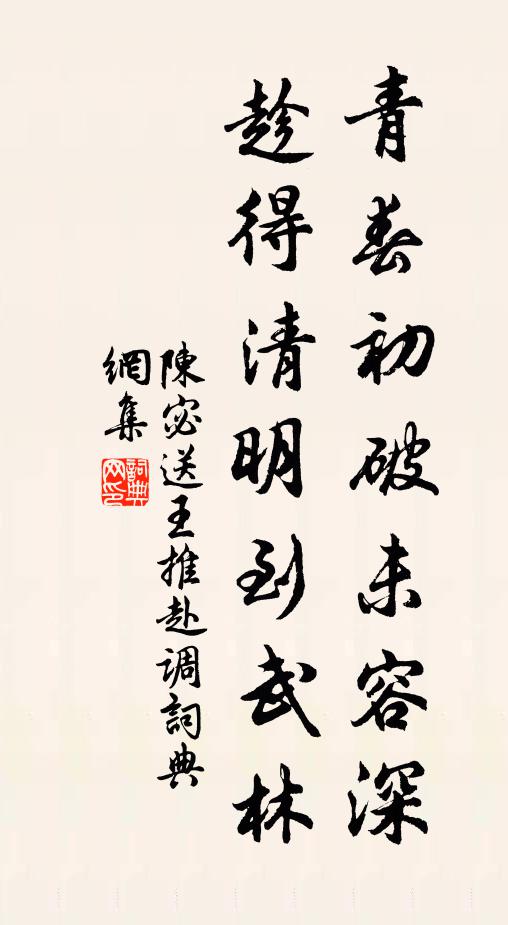 青春初破未容深
趁得清明到武林
陳宓送王推赴調詞典
網集
詞典網印